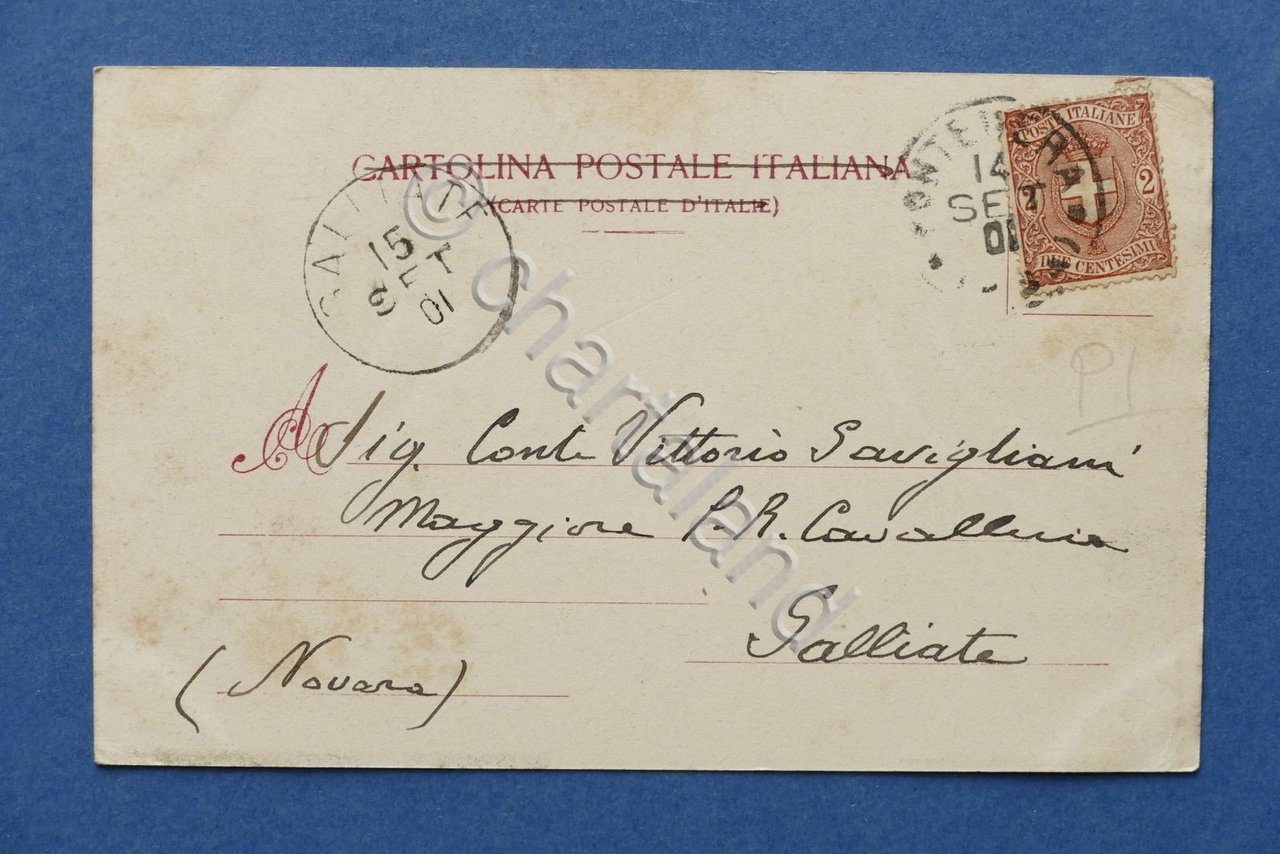 CARTOLINA POSTALE ITALIANA
(CARTE POSTALE D'ITALIE)
GALLIATE
15
SET
01
14
SET
01
POSTE ITALIANE
2 2
DUE CENTESIMI
A Sig. Conte Vittorio Savigliani
Maggiore P. R. Cavalleria
Galliate
(Novara)
© chartaland